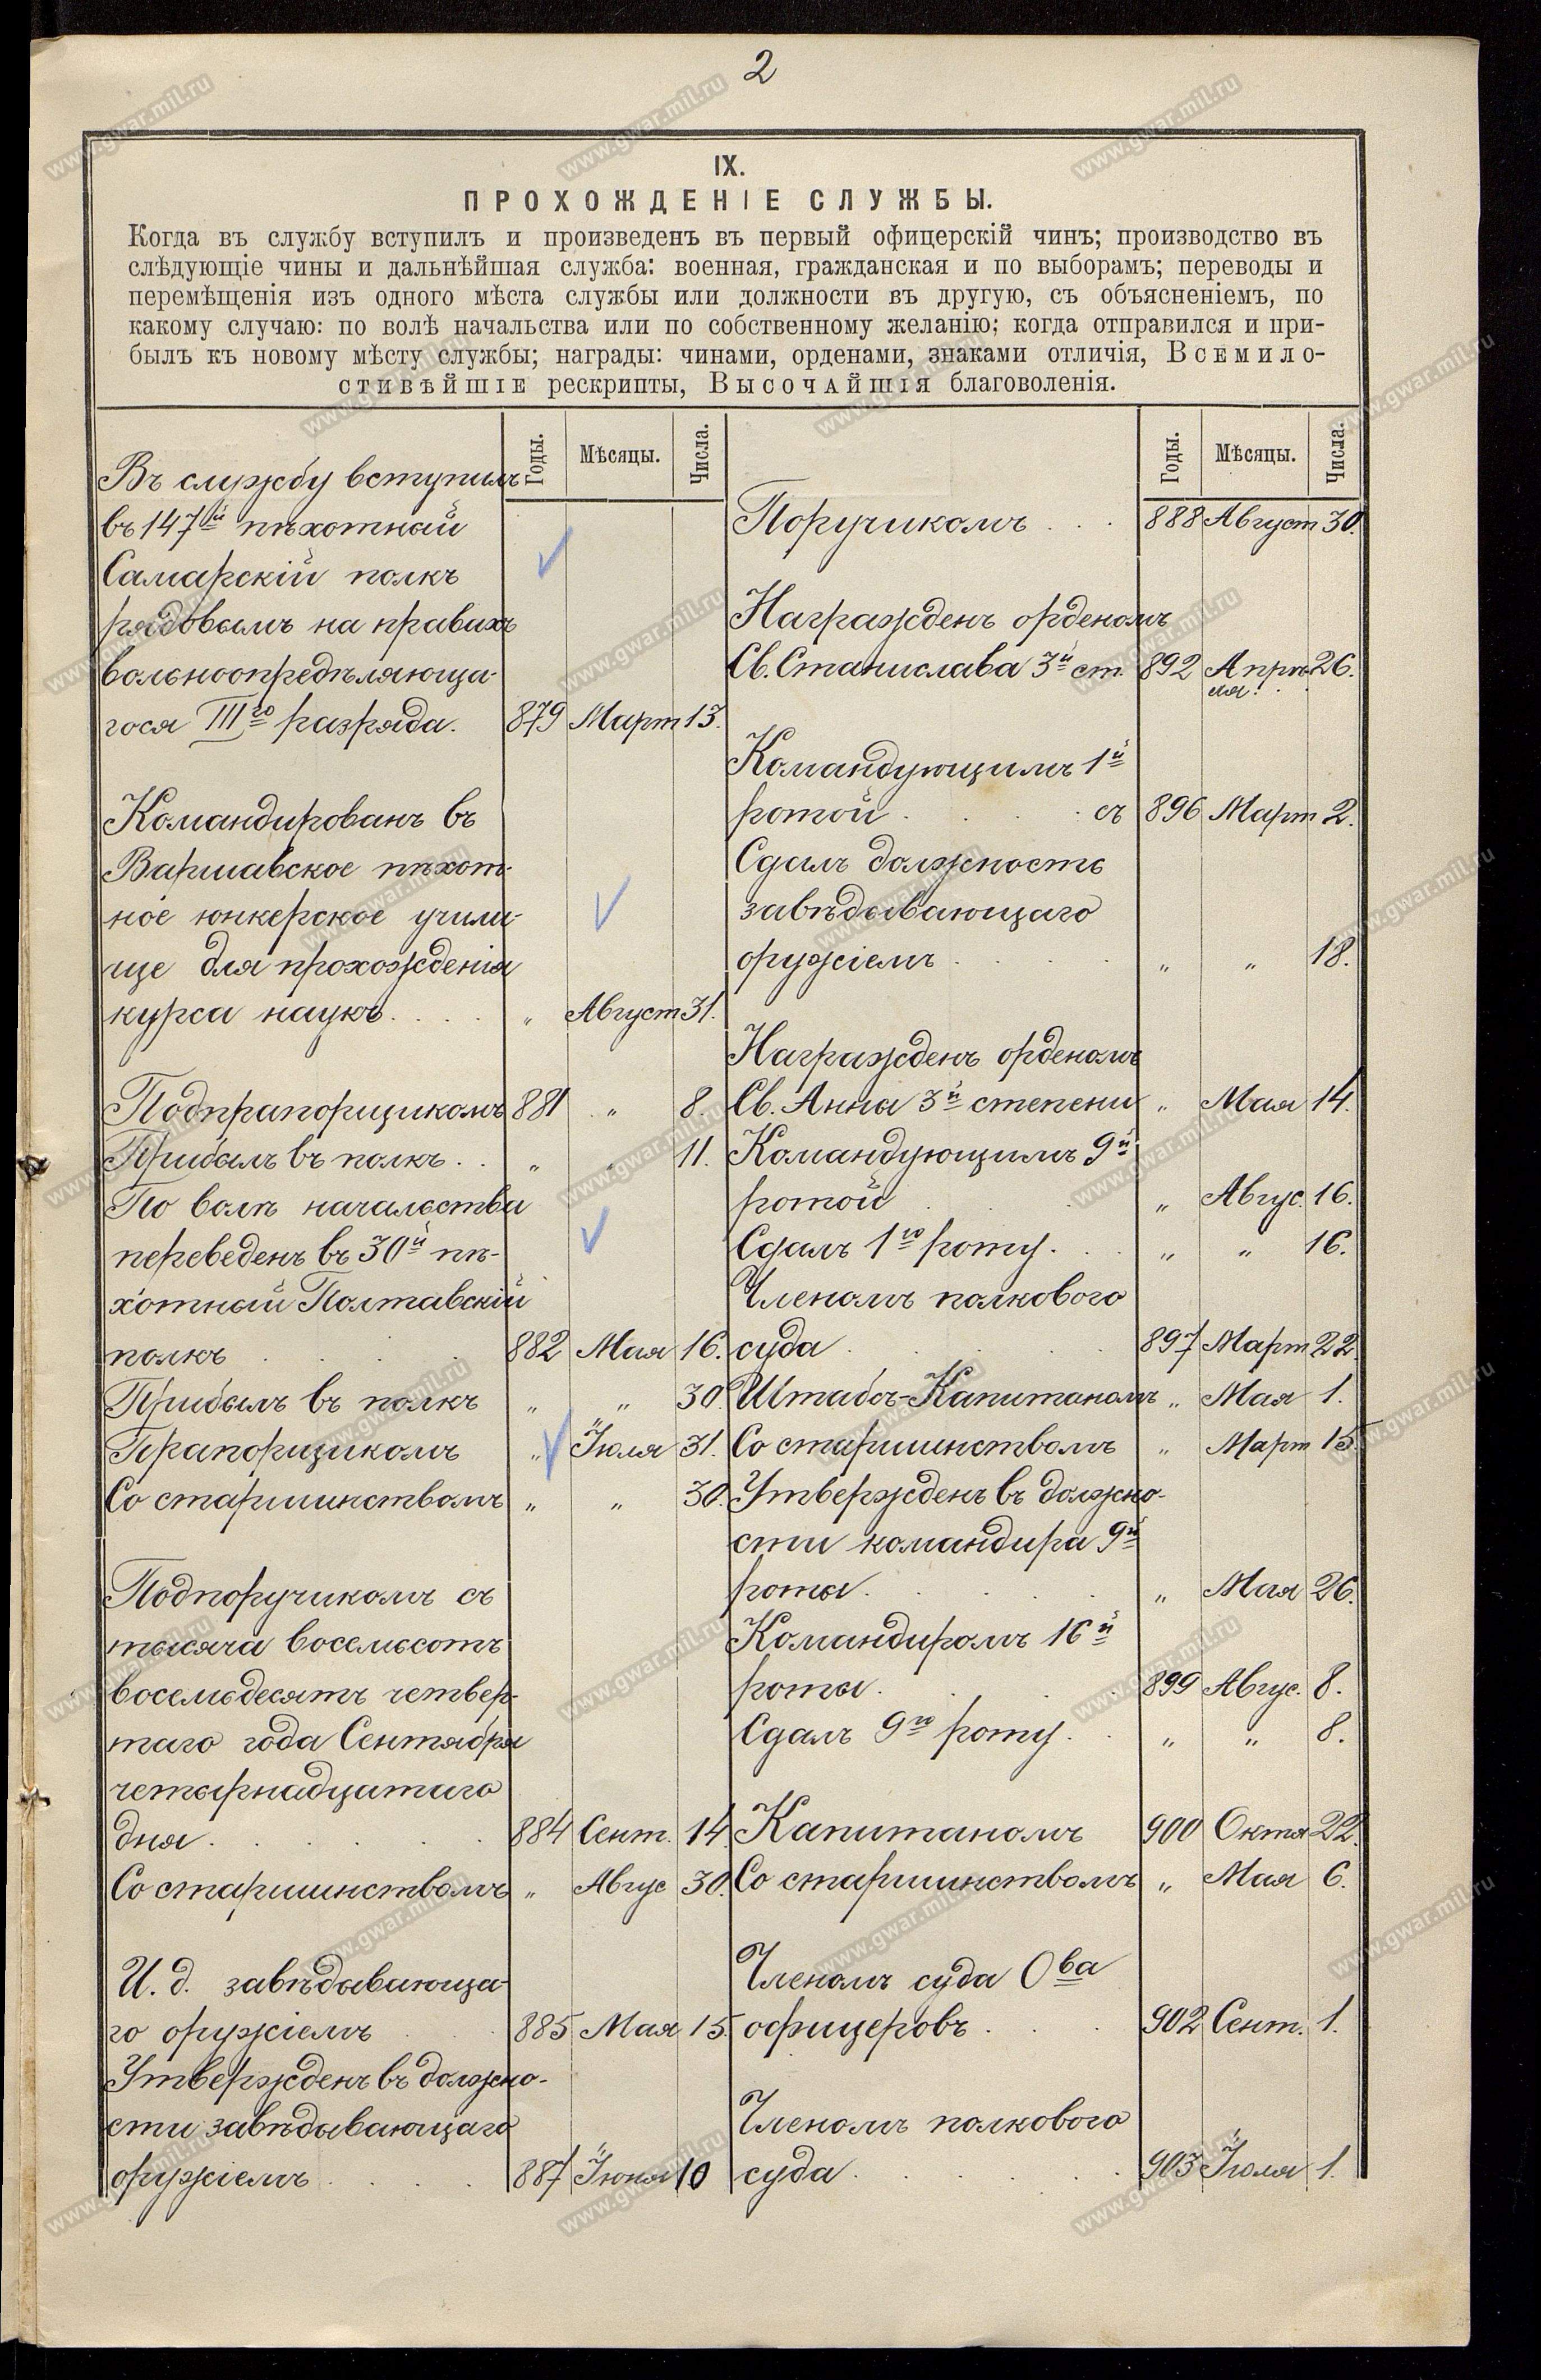 2
IX.
ПРОХОЖДЕНІЕ СЛУЖБЫ.
Когда въ службу вступилъ и произведенъ въ первый офицерскій чинъ; производство въ
слѣдующіе чины и дальнѣйшая служба: военная, гражданская и по выборамъ; переводы и
перемѣщенія изъ одного мѣста службы или должности въ другую, съ объясненіемъ, по
какому случаю: по волѣ начальства или по собственному желанію; когда отправился и при-
былъ къ новому мѣсту службы; награды: чинами, орденами, знаками отличія, Всемило-
стивѣйшіе рескрипты, Высочайшія благоволенія.
Годы. Мѣсяцы. Числа.
Въ службу вступилъ
въ 147й пѣхотный
Самарскій полкъ
рядовымъ на правахъ
вольноопредѣляюща-
гося IIIго разряда. 879 Март 13.
Командированъ въ
Варшавское пѣхот-
ное юнкерское учили-
ще для прохожденія
курса наукъ.... „ Август 31.
Подпрапорщикомъ 881 „ 8.
Прибылъ въ полкъ.. „ „ 11.
По волѣ начальства
переведенъ въ 30й пѣ-
хотный Полтавскій
полкъ.... 882 Мая 16.
Прибылъ въ полкъ „ „ 30.
Прапорщикомъ „ Іюля 31.
Со старшинствомъ „ „ 30.
Подпоручикомъ съ
тысяча восемьсотъ
восемьдесятъ четвер-
таго года Сентября
четырнадцатаго
дня...... 884 Сент. 14.
Со старшинствомъ „ Авгус 30.
И. д. завѣдывающа-
го оружіемъ.. 885 Мая 15.
Утвержденъ въ должно-
сти завѣдывающаго
оружіемъ.... 887 Іюня 10
Годы. Мѣсяцы. Числа.
Поручикомъ... 888 Август 30.
Награжденъ орденомъ
Св. Станислава 3й ст. 892 Апрѣ- 26.
ля...
Командующимъ 1й
ротой.... съ 896 Март 2.
Сдалъ должность
завѣдывающаго
оружіемъ.... „ „ 18.
Награжденъ орденомъ
Св. Анны 3й степени „ Мая 14.
Командующимъ 9й
ротой... „ Авгус. 16.
Сдалъ 1ю роту... „ „ 16.
Членомъ полкового
суда..... 897 Март 22.
Штабсъ-Капитаномъ „ Мая 1.
Со старшинствомъ „ Март 15.
Утвержденъ въ должно-
сти командира 9й
роты..... „ Мая 26.
Командиромъ 16й
роты..... 899 Авгус. 8.
Сдалъ 9ю роту.. „ „ 8.
Капитаномъ 900 Октя 22.
Со старшинствомъ „ Мая 6.
Членомъ суда Ова
офицеровъ... 902 Сент. 1.
Членомъ полкового
суда...... 903 Іюля 1.
www.gwar.mil.ru